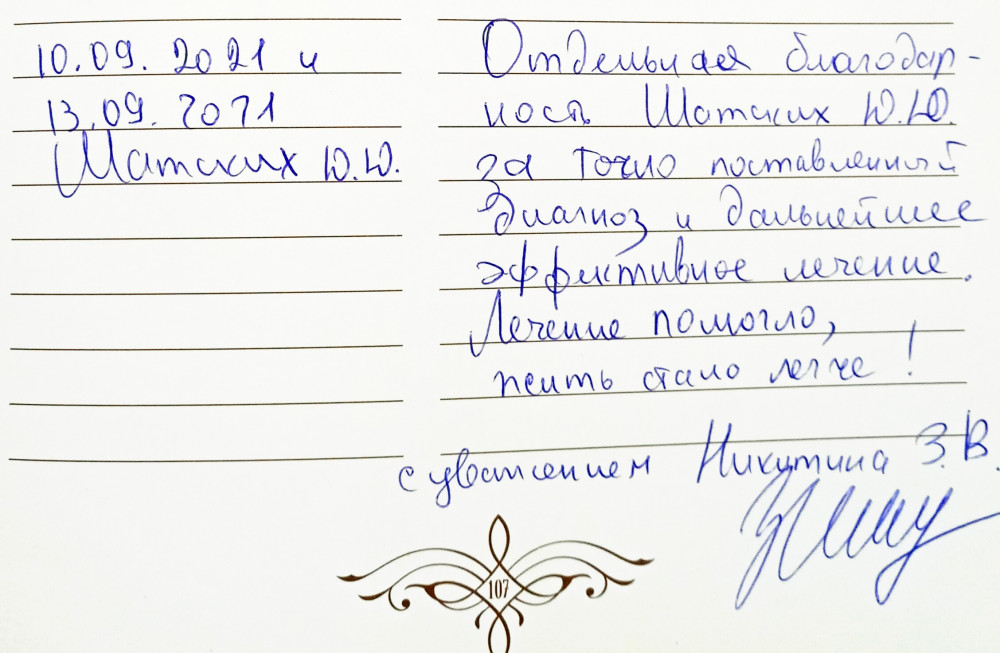 10.09.2021 и
13.09.2021
Шатских Ю.Ю.
Отдельная благодар-
ность Шатских Ю.Ю.
за точно поставленный
диагноз и дальнейшее
эффективное лечение.
Лечение помогло,
жить стало легче!
с уважением Никитина З.В.
107